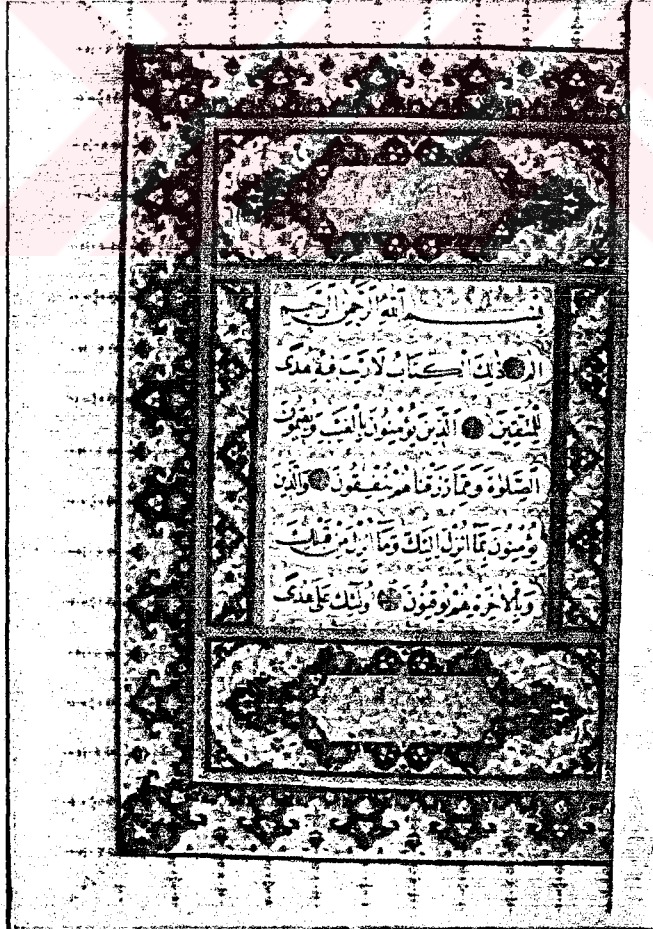 بِسْمِ اللهِ الرَّحْمٰنِ الرَّحِيمِ
الٓمٓ ذٰلِكَ الْكِتَابُ لَا رَيْبَ فِيهِ هُدًى
لِلْمُتَّقِينَ اَلَّذِينَ يُؤْمِنُونَ بِالْغَيْبِ وَيُقِيمُونَ
الصَّلٰوةَ وَمِمَّا رَزَقْنَاهُمْ يُنْفِقُونَ وَالَّذِينَ
يُؤْمِنُونَ بِمَٓا اُنْزِلَ اِلَيْكَ وَمَٓا اُنْزِلَ مِنْ قَبْلِكَ
وَبِالْاٰخِرَةِ هُمْ يُوقِنُونَ اُولٰٓئِكَ عَلٰى هُدًى